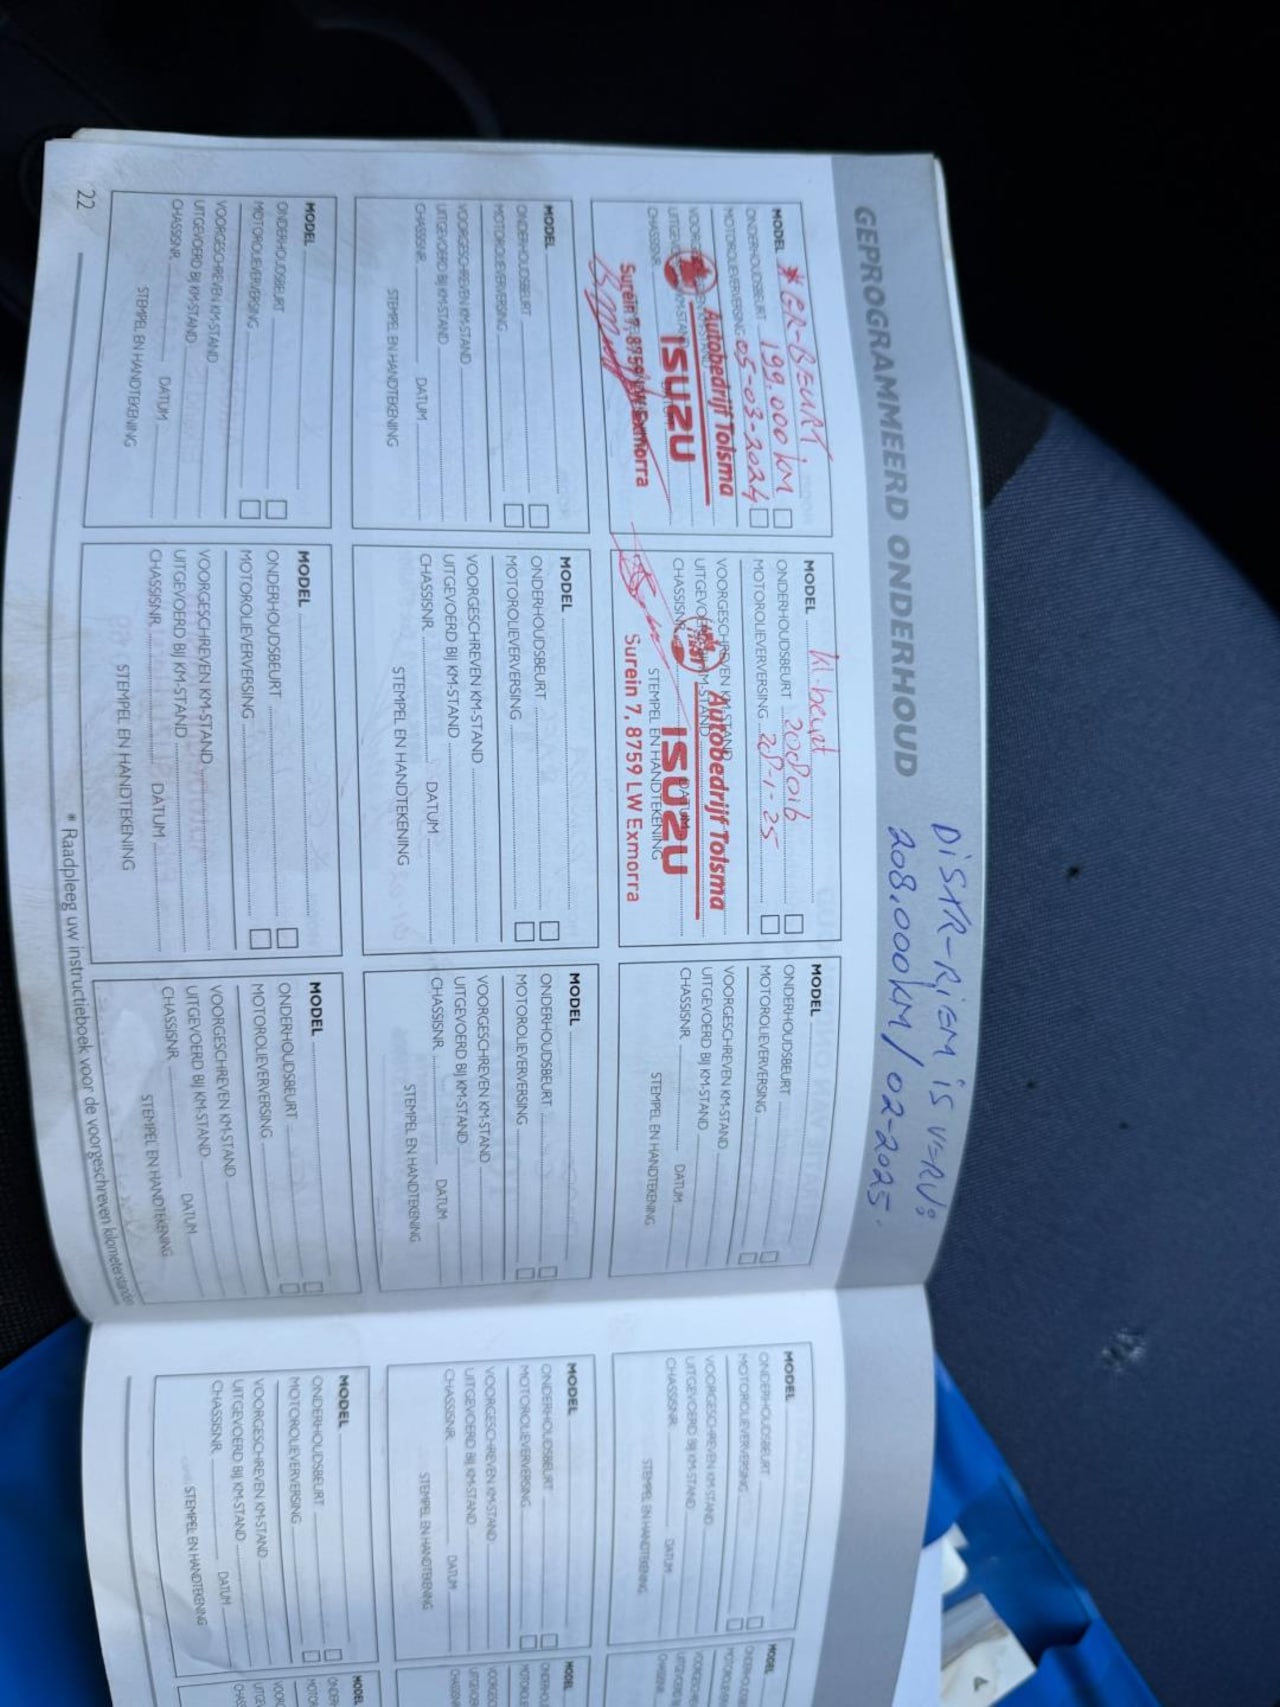 GEPROGRAMMEERD ONDERHOUD
DISTR-RIEM IS VERV:
208.000KM / 02-2025.
MODEL * GR-BEURT
ONDERHOUDSBEURT 199.000KM
MOTOROLIEVERVERSING 05-03-2024
CHASSISNR.
Autobedrijf Tolsma
ISUZU
Surein 7, 8759 LW Exmorra
MODEL kl-beurt
ONDERHOUDSBEURT 208016
MOTOROLIEVERVERSING 28-1-25
VOORGESCHREVEN KM-STAND
UITGEVOERD BIJ KM-STAND
CHASSISNR. DATUM
STEMPEL EN HANDTEKENING
Autobedrijf Tolsma
ISUZU
Surein 7, 8759 LW Exmorra
MODEL
ONDERHOUDSBEURT
MOTOROLIEVERVERSING
VOORGESCHREVEN KM-STAND
UITGEVOERD BIJ KM-STAND
CHASSISNR. DATUM
STEMPEL EN HANDTEKENING
MODEL
ONDERHOUDSBEURT
MOTOROLIEVERVERSING
VOORGESCHREVEN KM-STAND
UITGEVOERD BIJ KM-STAND
CHASSISNR. DATUM
STEMPEL EN HANDTEKENING
MODEL
ONDERHOUDSBEURT
MOTOROLIEVERVERSING
VOORGESCHREVEN KM-STAND
UITGEVOERD BIJ KM-STAND
CHASSISNR. DATUM
STEMPEL EN HANDTEKENING
MODEL
ONDERHOUDSBEURT
MOTOROLIEVERVERSING
VOORGESCHREVEN KM-STAND
UITGEVOERD BIJ KM-STAND
CHASSISNR. DATUM
STEMPEL EN HANDTEKENING
MODEL
ONDERHOUDSBEURT
MOTOROLIEVERVERSING
VOORGESCHREVEN KM-STAND
UITGEVOERD BIJ KM-STAND
CHASSISNR. DATUM
STEMPEL EN HANDTEKENING
MODEL
ONDERHOUDSBEURT
MOTOROLIEVERVERSING
VOORGESCHREVEN KM-STAND
UITGEVOERD BIJ KM-STAND
CHASSISNR. DATUM
STEMPEL EN HANDTEKENING
MODEL
ONDERHOUDSBEURT
MOTOROLIEVERVERSING
VOORGESCHREVEN KM-STAND
UITGEVOERD BIJ KM-STAND
CHASSISNR. DATUM
STEMPEL EN HANDTEKENING
* Raadpleeg uw instructieboek voor de voorgeschreven kilometerstanden
22
MODEL
ONDERHOUDSBEURT
MOTOROLIEVERVERSING
VOORGESCHREVEN KM-STAND
UITGEVOERD BIJ KM-STAND
CHASSISNR. DATUM
STEMPEL EN HANDTEKENING
MODEL
MODEL
ONDERHOUDSBEURT
MOTOROLIEVERVERSING
VOORGESCHREVEN KM-STAND
UITGEVOERD BIJ KM-STAND
CHASSISNR. DATUM
STEMPEL EN HANDTEKENING
MODEL
MODEL
ONDERHOUDSBEURT
MOTOROLIEVERVERSING
VOORGESCHREVEN KM-STAND
UITGEVOERD BIJ KM-STAND
CHASSISNR. DATUM
STEMPEL EN HANDTEKENING
MODEL